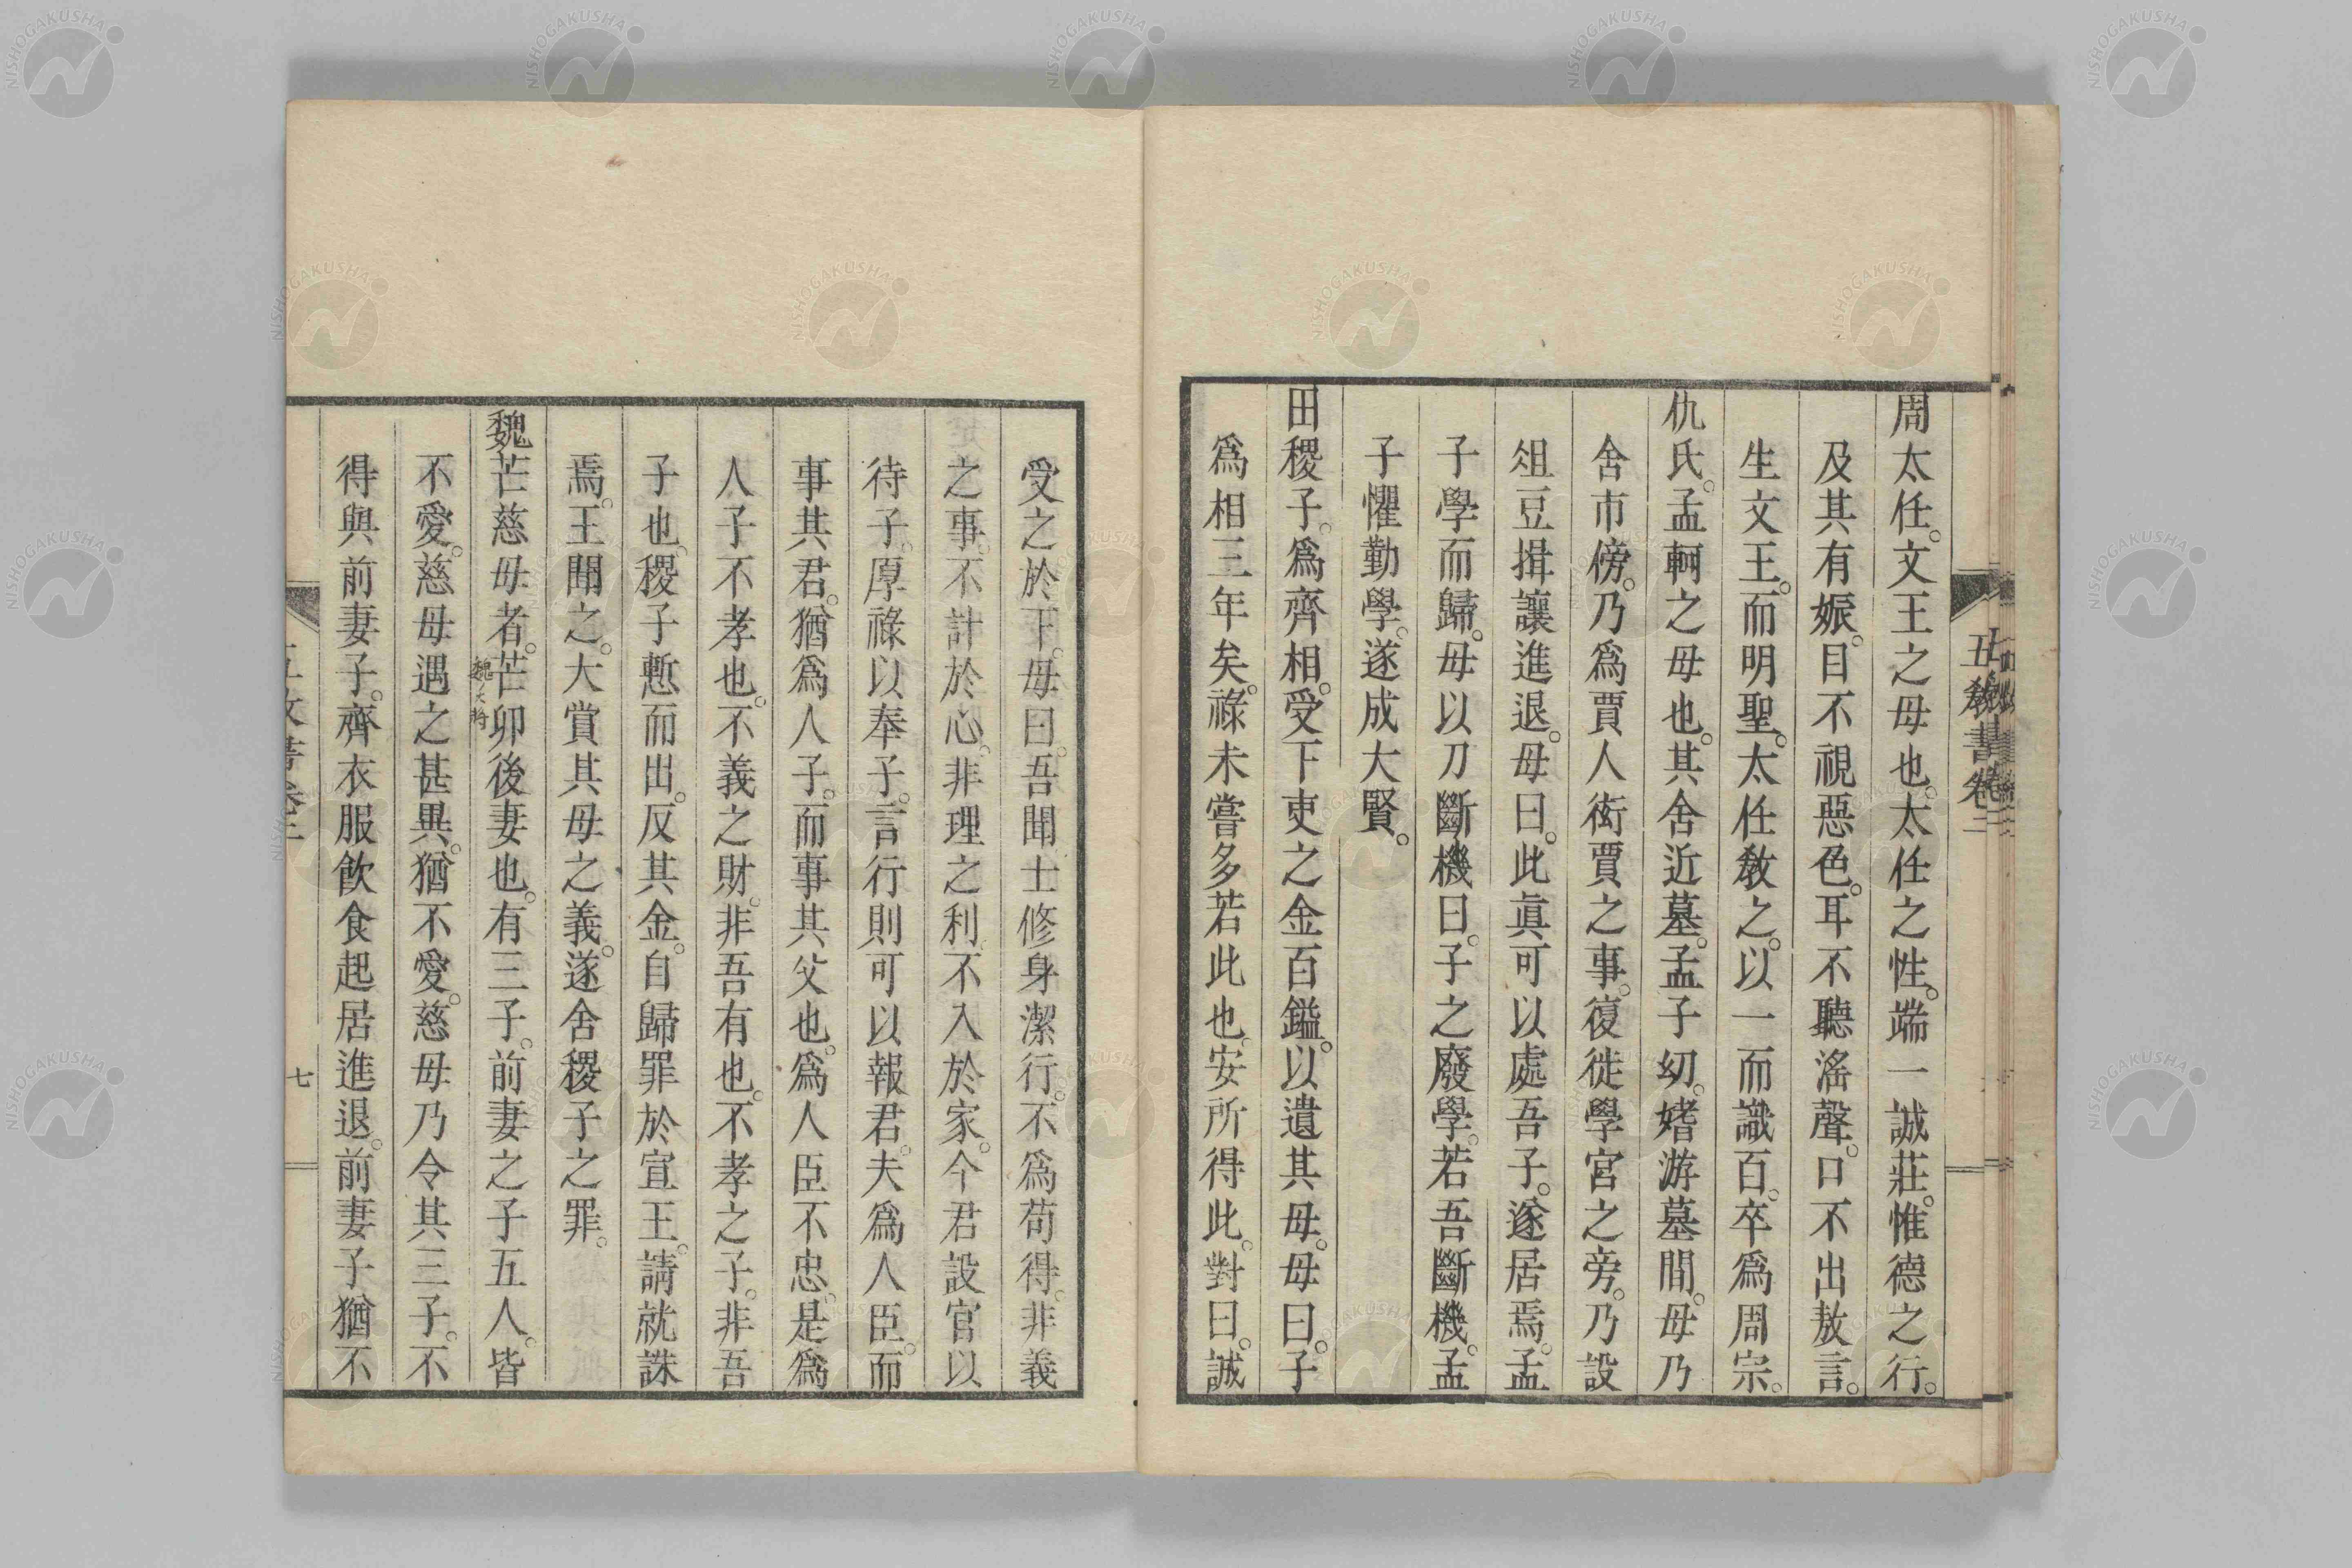 周太任。文王之母也。太任之性。端一誠莊。惟德之行。
及其有娠。目不視惡色。耳不聽滛聲。口不出敖言。
生文王。而明聖。太任敎之。以一而識百。卒爲周宗。
仇氏。孟軻之母也。其舍近墓。孟子幼。嬉游墓間。母乃
舍市傍。乃爲賈人衒賣之事。復徙學宮之旁。乃設
俎豆揖讓進退。母曰。此眞可以處吾子。遂居焉。孟
子學而歸。母以刀斷機曰。子之廢學。若吾斷機。孟
子懼勤學。遂成大賢。
田稷子。爲齊相。受下吏之金百鎰。以遺其母。母曰。子
爲相三年矣。祿未嘗多若此也。安所得此。對曰。誠
受之於下。母曰。吾聞士修身潔行。不爲苟得。非義
之事。不計於心。非理之利。不入於家。今君設官以
待子。厚祿以奉子。言行則可以報君。夫爲人臣。而
事其君。猶爲人子。而事其父也。爲人臣不忠。是爲
人子不孝也。不義之財。非吾有也。不孝之子。非吾
子也。稷子慙而出。反其金。自歸罪於宣王。請就誅
焉。王聞之。大賞其母之義。遂舍稷子之罪。
魏芒慈母者。芒卯後妻也。有三子。前妻之子五人。皆
魏大將
不愛。慈母遇之甚異。猶不愛。慈母乃令其三子。不
得與前妻子。齊衣服飮食起居進退。前妻子猶不
五敎書卷二
七
NISHOGAKUSHA